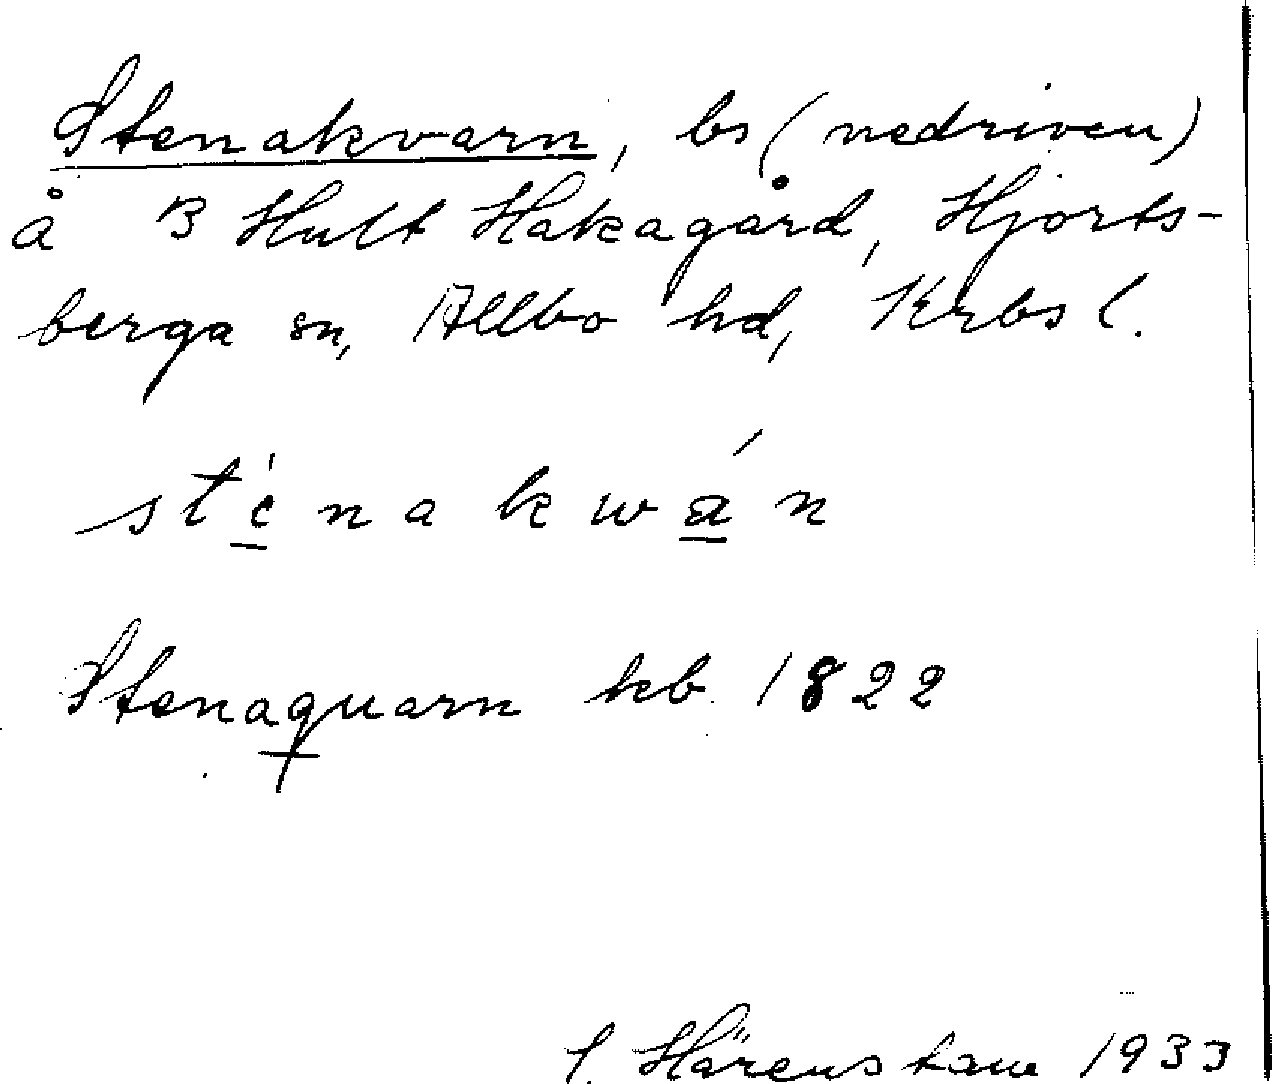 Stenakvarn, bs (nedriven)
å 13 Hult Hakagård, Hjorts-
berga sn, Allbo hd, Krbs l.
sténakwán
Stenaquarn kb. 1822
S. Härenstam 1933